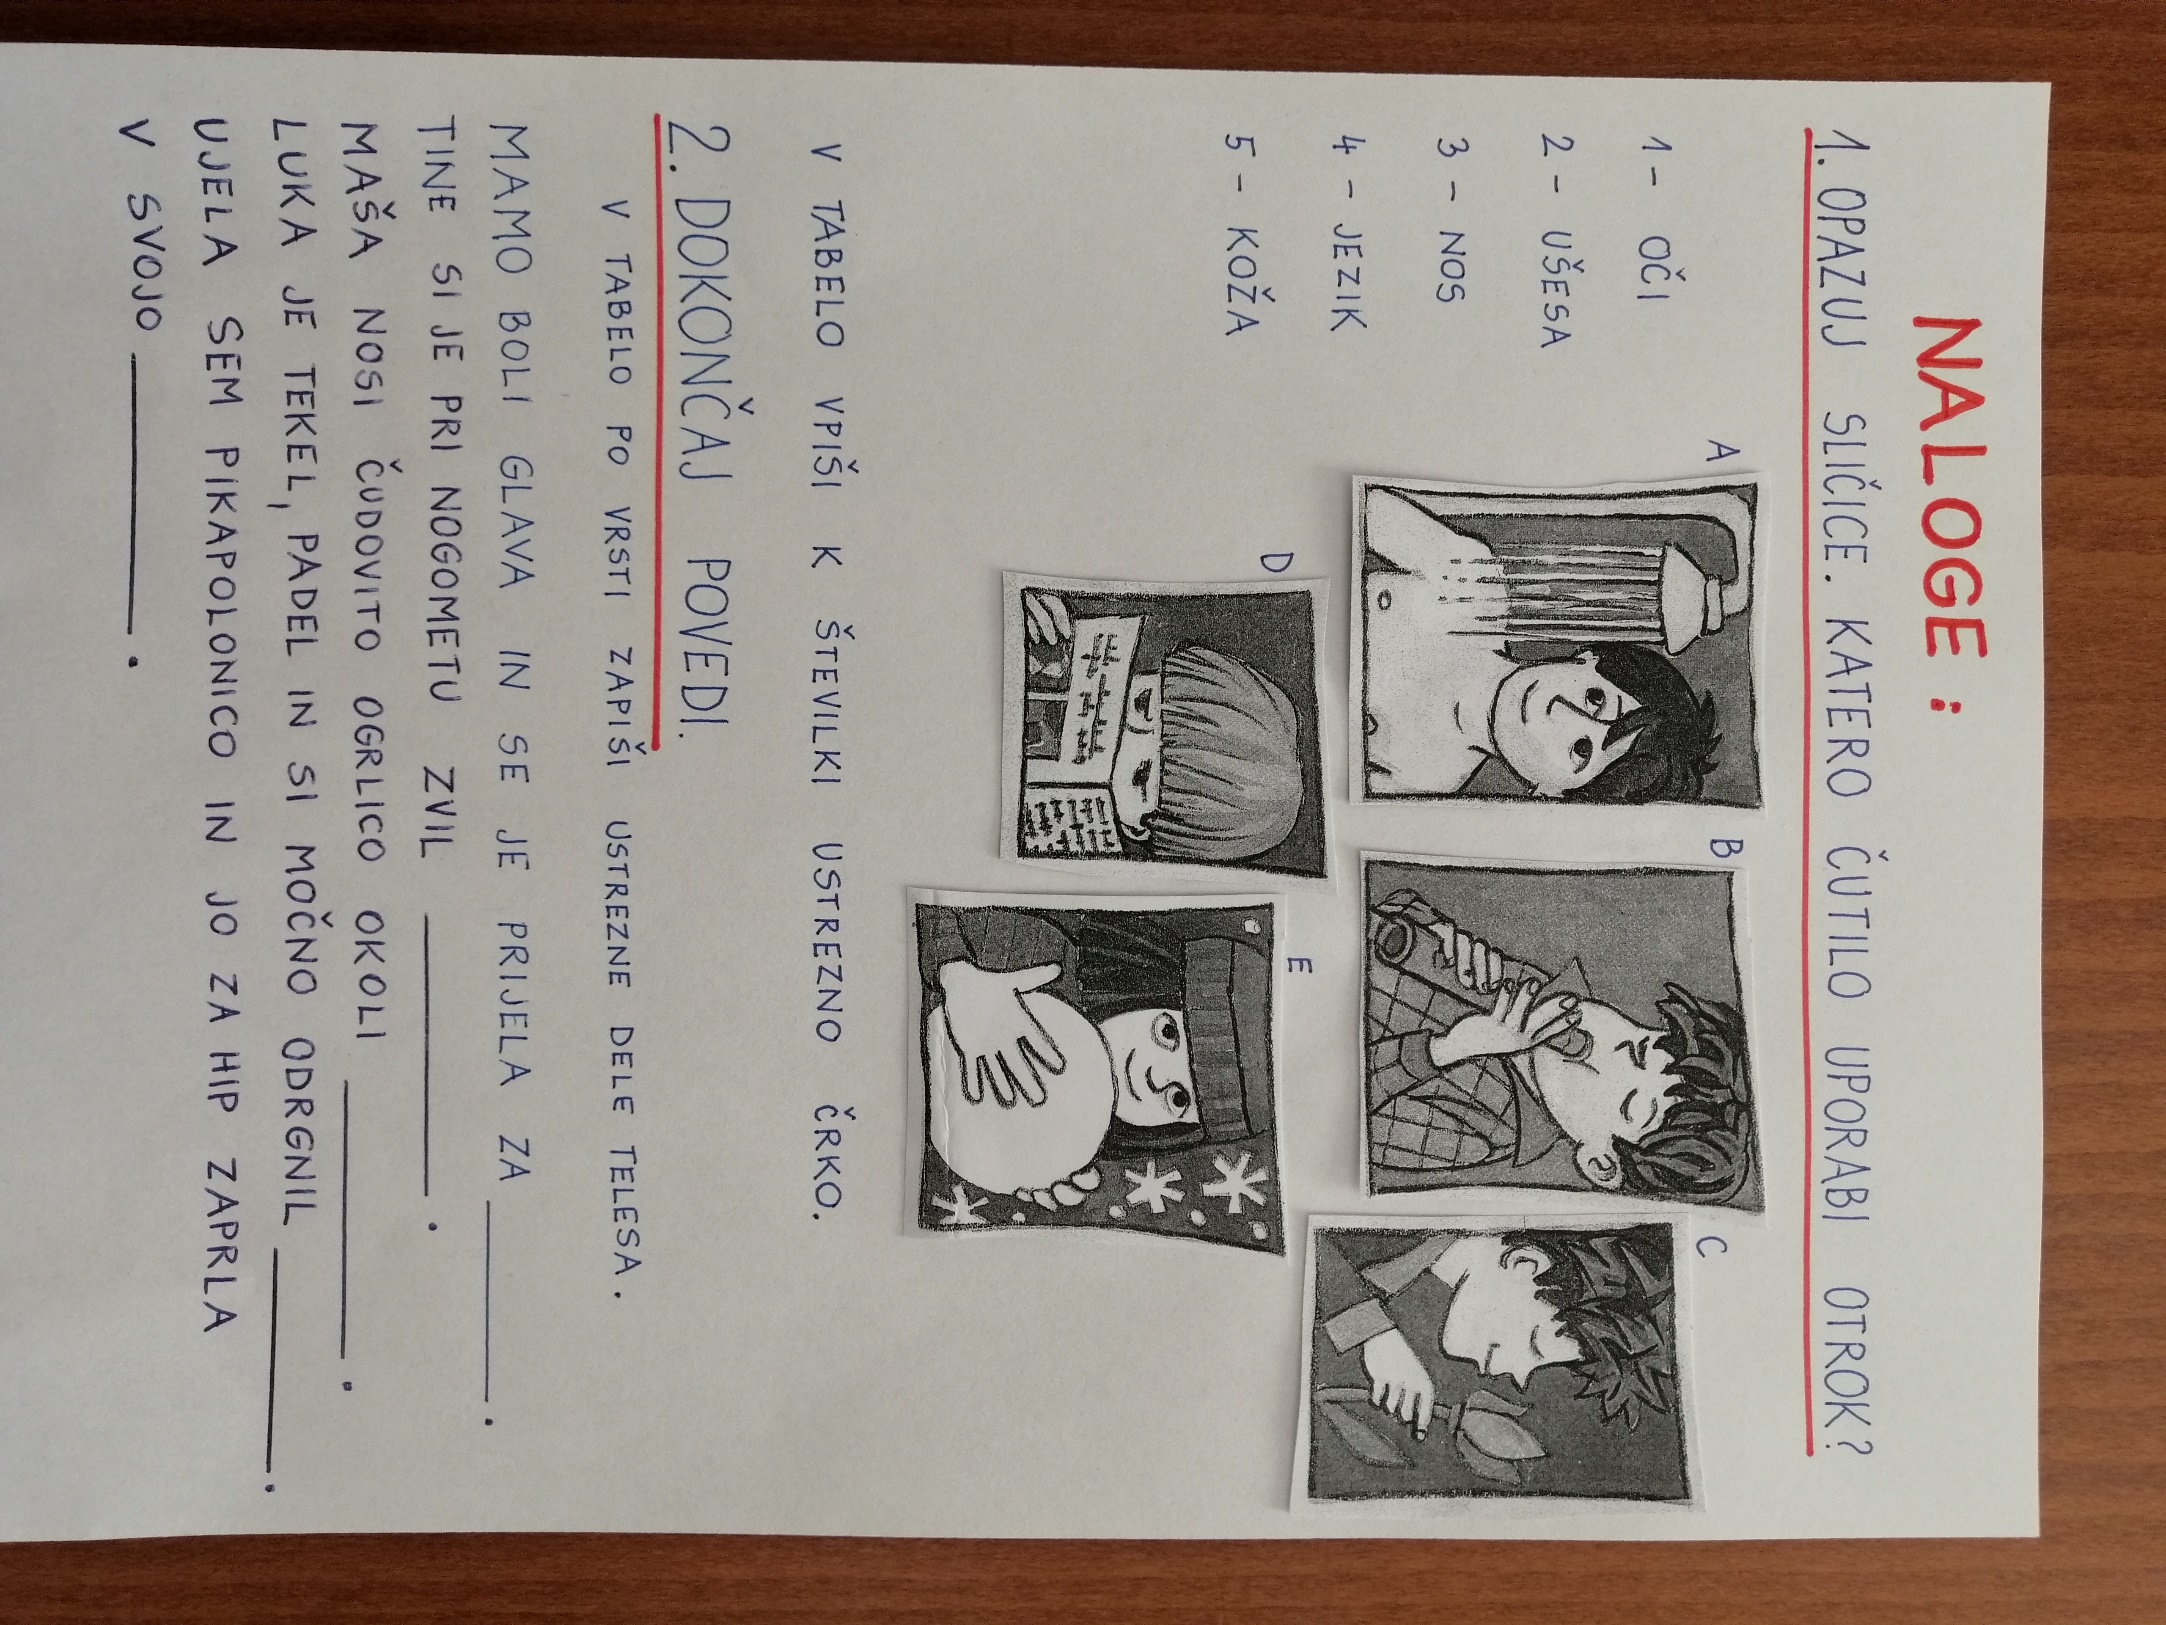 NALOGE:
1. OPAZUJ SLIČICE. KATERO ČUTILO UPORABI OTROK?
1 - OČI
2 - UŠESA
3 - NOS
4 - JEZIK
5 - KOŽA
A
B
C
D
E
V TABELO VPIŠI K ŠTEVILKI USTREZNO ČRKO.
2. DOKONČAJ POVEDI.
V TABELO PO VRSTI ZAPIŠI USTREZNE DELE TELESA.
MAMO BOLI GLAVA IN SE JE PRIJELA ZA ________.
TINE SI JE PRI NOGOMETU ZVIL ________.
MAŠA NOSI ČUDOVITO OGRLICO OKOLI ________.
LUKA JE TEKEL, PADEL IN SI MOČNO ODRGNIL ________.
UJELA SEM PIKAPOLONICO IN JO ZA HIP ZAPRLA
V SVOJO ________.